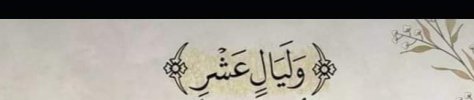 ﴿وَلَيَالٍ عَشْرٍ﴾